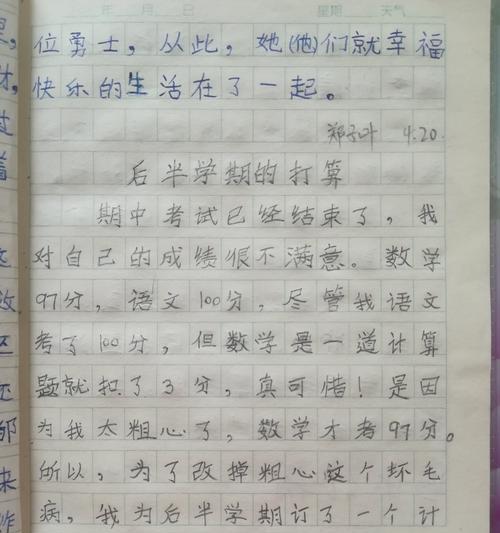 年 月 日 星期 天气
位勇士，从此，她(他)们就幸福
快乐的生活在了一起。
郑子叶 4.20.
后半学期的打算
期中考试已经结束了，我
对自己的成绩很不满意。数学
97分，语文100分，尽管我语文
考了100分，但数学是一道计算
题就扣了3分，真可惜！是因
为我太粗心了，数学才考97分。
所以，为了改掉粗心这个坏毛
病，我为后半学期订了一个计